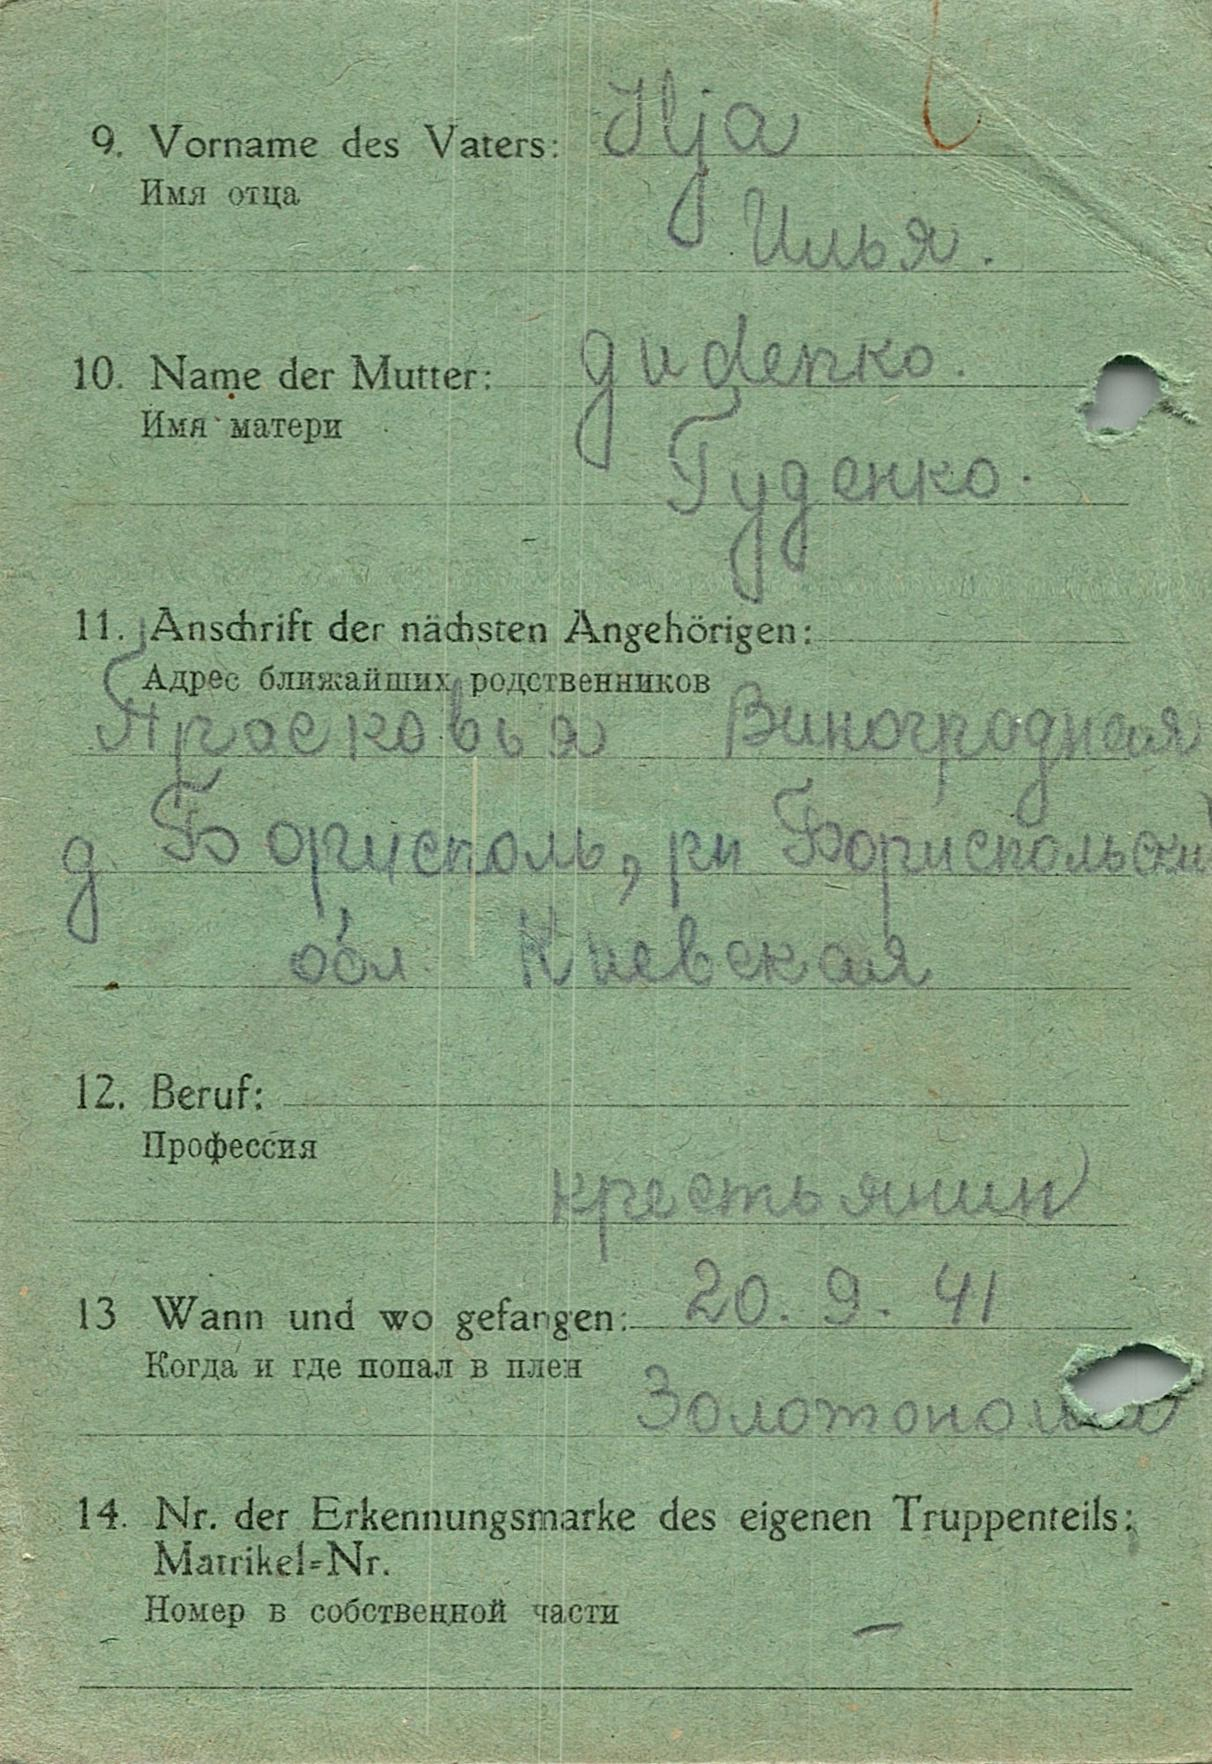 9. Vorname des Vaters: Ilja
Имя отца
Илья.
10. Name der Mutter: gudenko.
Имя матери
Гуденко.
11. Anschrift der nächsten Angehörigen:
Адрес ближайших родственников
Прасковья Виноградная
д Борисполь, рн Бориспольский
обл. Киевская
12. Beruf:
Профессия
крестьянин
13 Wann und wo gefangen: 20. 9. 41
Когда и где попал в плен
14. Nr. der Erkennungsmarke des eigenen Truppenteils:
Matrikel=Nr.
Номер в собственной части
–